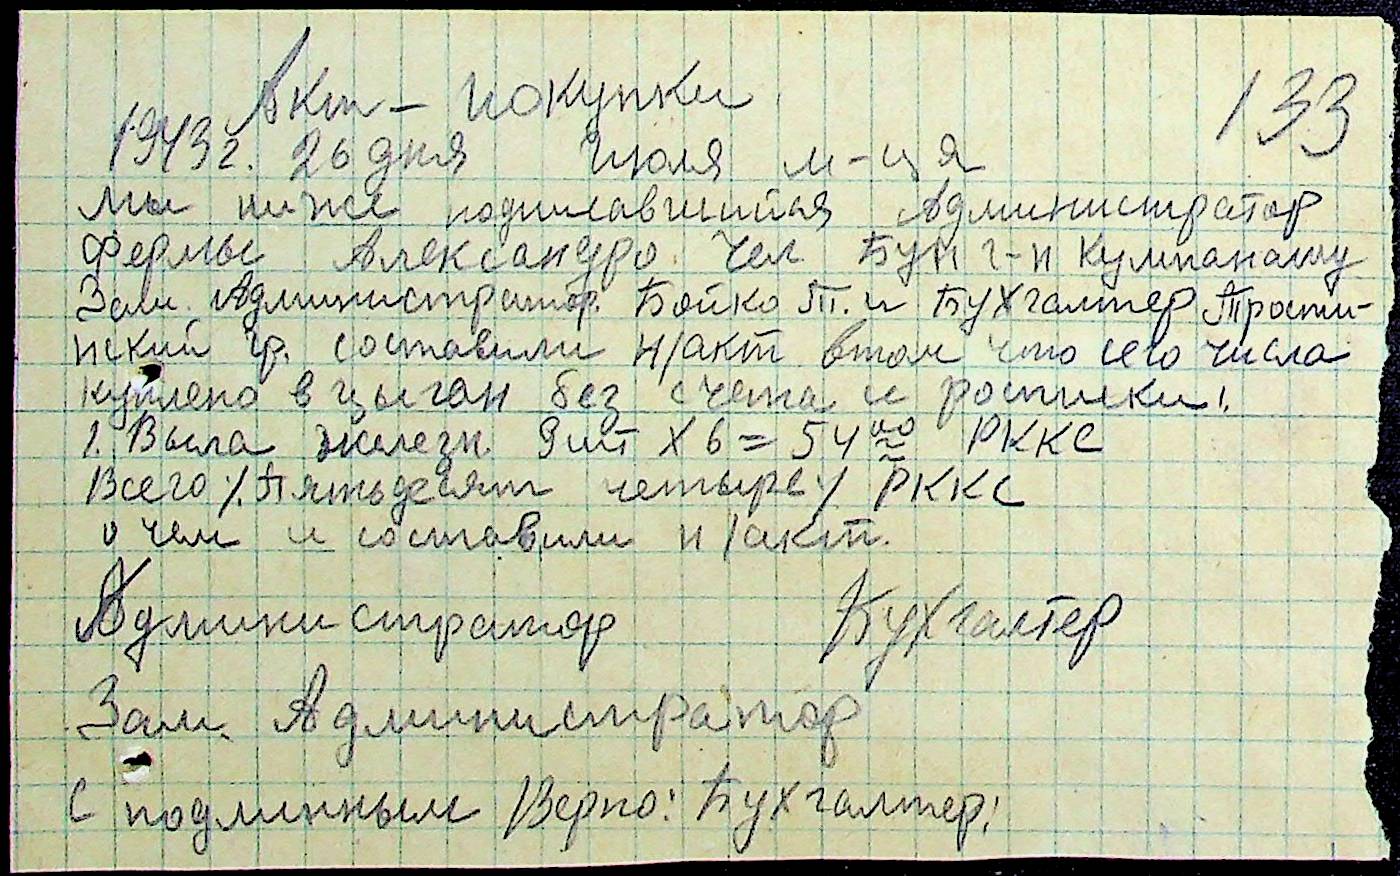 Акт – покупки
133
1943 г. 26 дня Июля м-ця
мы ниже подписавшийся Администратор
фермы Александро. Чел Бун г-н Кумпанашу
Зам. Администратор. Бойко Т. и Бухгалтер Трости-
нский гр. составили н/акт втом что сего числа
куплено в цыган без счета и росписки!.
1. Выла железн. 9 шт Х 6 = 54 00 РККС
Всего /. Пятьдесят четыре / РККС
о чем и составили н/акт.
Администратор Бухгалтер
Зам. Администратор
С подлинным Верно: Бухгалтер: